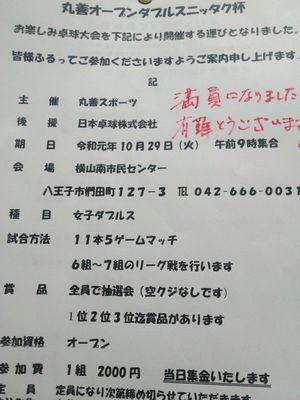 丸善オープンダブルスニッタク杯
お楽しみ卓球大会を下記により開催する運びとなりました。
皆様ふるってご参加くださいますようご案内申し上げます。
記
主 催 丸善スポーツ
満員になりました
後 援 日本卓球株式会社
有難とうございま
期 日 令和元年10月29日(火) 午前9時集合
会 場 横山南市民センター
八王子市椚田町127-3 TEL 042-666-0031
種 目 女子ダブルス
試合方法 11本5ゲームマッチ
6組~7組のリーグ戦を行います
賞 品 全員で抽選会(空クジなしです)
1位2位3位迄賞品があります
参加資格 オープン
参 加 費 1組 2000円 当日集金いたします
定 員 定員になり次第締め切らせていただきます